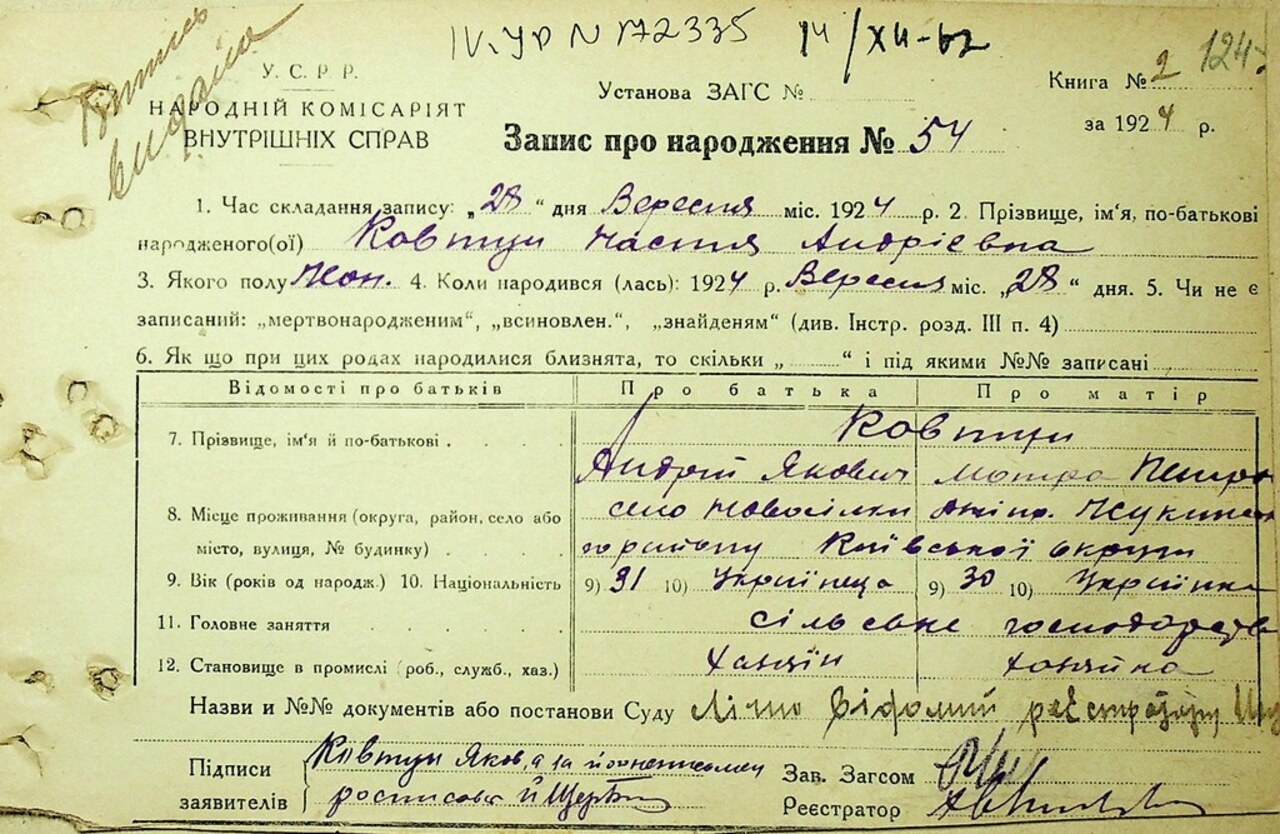 IV-УР N 172335 14/XII-62
124
видана
У. С. Р. Р.
НАРОДНІЙ КОМІСАРІЯТ
ВНУТРІШНІХ СПРАВ
Установа ЗАГС №
Книга № 2
за 1924 р.
Запис про народження № 54
1. Час складання запису: „28“ дня Вересня міс. 1924 р. 2. Прізвище, ім'я, по-батькові
народженого(ої) Ковтун Настя Андрієвна
3. Якого полу Жон. 4. Коли народився (лась): 1924 р. Вересня міс. „28“ дня. 5. Чи не є
записаний: „мертвонародженим“, „всиновлен.“, „знайденям“ (див. Інстр. розд. III п. 4)
6. Як що при цих родах народилися близнята, то скільки „ “ і під якими №№ записані
Відомості про батьків Про батька Про матір
7. Прізвище, ім'я й по-батькові Ковтун
Андрій Якович Мотра Петро
8. Місце проживання (округа, район, село або село Новосілки
місто, вулиця, № будинку) району Київської округи
9. Вік (років од народж.) 10. Національність 9) 31 10) Українець 9) 30 10) Українка
11. Головне заняття сільське господарство
12. Становище в промислі (роб., служб., хаз.) хазяїн хазяйка
Назви и №№ документів або постанови Суду Лічно відомий
Підписи Ковтун Яков, а за
заявителів
Зав. Загсом
Реєстратор